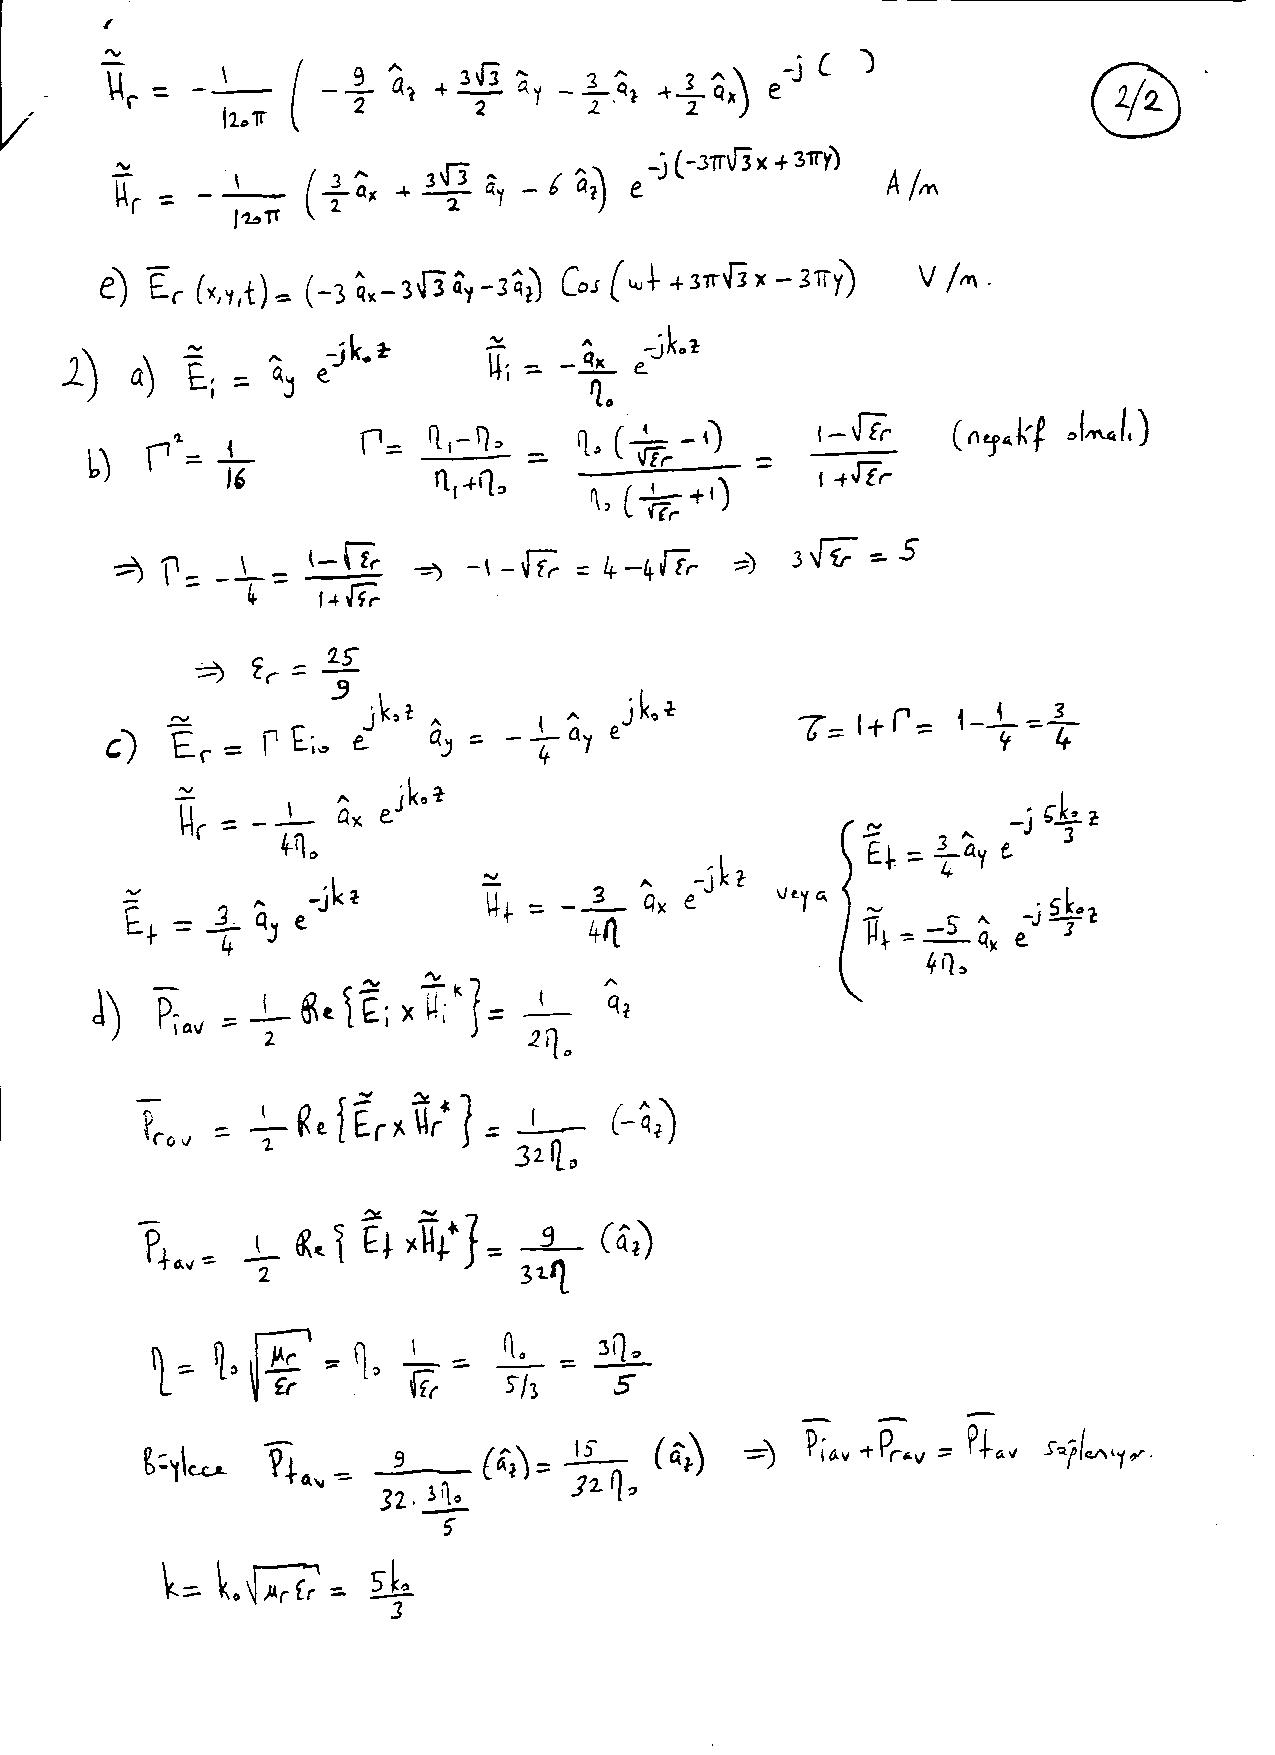 2/2
H̃̄r = -1/(120π) ( -9/2 âz + 3√3/2 ây - 3/2 âz + 3/2 âx ) e^{-j( )}
H̃̄r = -1/(120π) ( 3/2 âx + 3√3/2 ây - 6 âz ) e^{-j(-3π√3x + 3πy)} A/m
e) Ēr (x,y,t) = (-3 âx - 3√3 ây - 3 âz) Cos (ωt + 3π√3x - 3πy) V/m.
2) a) Ẽ̄i = ây e^{-jk₀z} H̃̄i = -âx/η₀ e^{-jk₀z}
b) Γ² = 1/16 Γ = (η₁-η₀)/(η₁+η₀) = η₀(1/√εr - 1)/η₀(1/√εr + 1) = (1-√εr)/(1+√εr) (negatif olmalı)
⇒ Γ = -1/4 = (1-√εr)/(1+√εr) ⇒ -1-√εr = 4-4√εr ⇒ 3√εr = 5
⇒ εr = 25/9
c) Ẽ̄r = Γ Ei₀ e^{jk₀z} ây = -1/4 ây e^{jk₀z} τ = 1+Γ = 1-1/4 = 3/4
H̃̄r = -1/(4η₀) âx e^{jk₀z}
Ẽ̄t = 3/4 ây e^{-jkz} H̃̄t = -3/(4η) âx e^{-jkz} veya { Ẽ̄t = 3/4 ây e^{-j 5k₀/3 z}
H̃̄t = -5/(4η₀) âx e^{-j 5k₀/3 z}
d) P̄iav = 1/2 Re{Ẽ̄i x H̃̄i*} = 1/(2η₀) âz
P̄rav = 1/2 Re{Ẽ̄r x H̃̄r*} = 1/(32η₀) (-âz)
P̄tav = 1/2 Re{Ẽ̄t x H̃̄t*} = 9/(32η) (âz)
η = η₀ √(μr/εr) = η₀ 1/√εr = η₀/(5/3) = 3η₀/5
Böylece P̄tav = 9/(32·3η₀/5) (âz) = 15/(32η₀) (âz) ⇒ P̄iav + P̄rav = P̄tav sağlanıyor.
k = k₀√(μrεr) = 5k₀/3